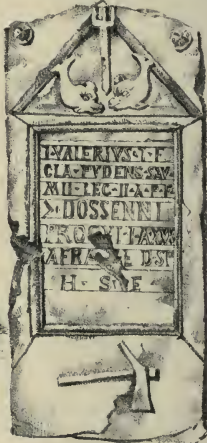 T·VALERIVS·T·F
CLA·PVDENS·SAV
MIL·LEG·II·A·P·F
>·DOSSENNI
PROCVLI·A·XXX
D·SP
H·S·E